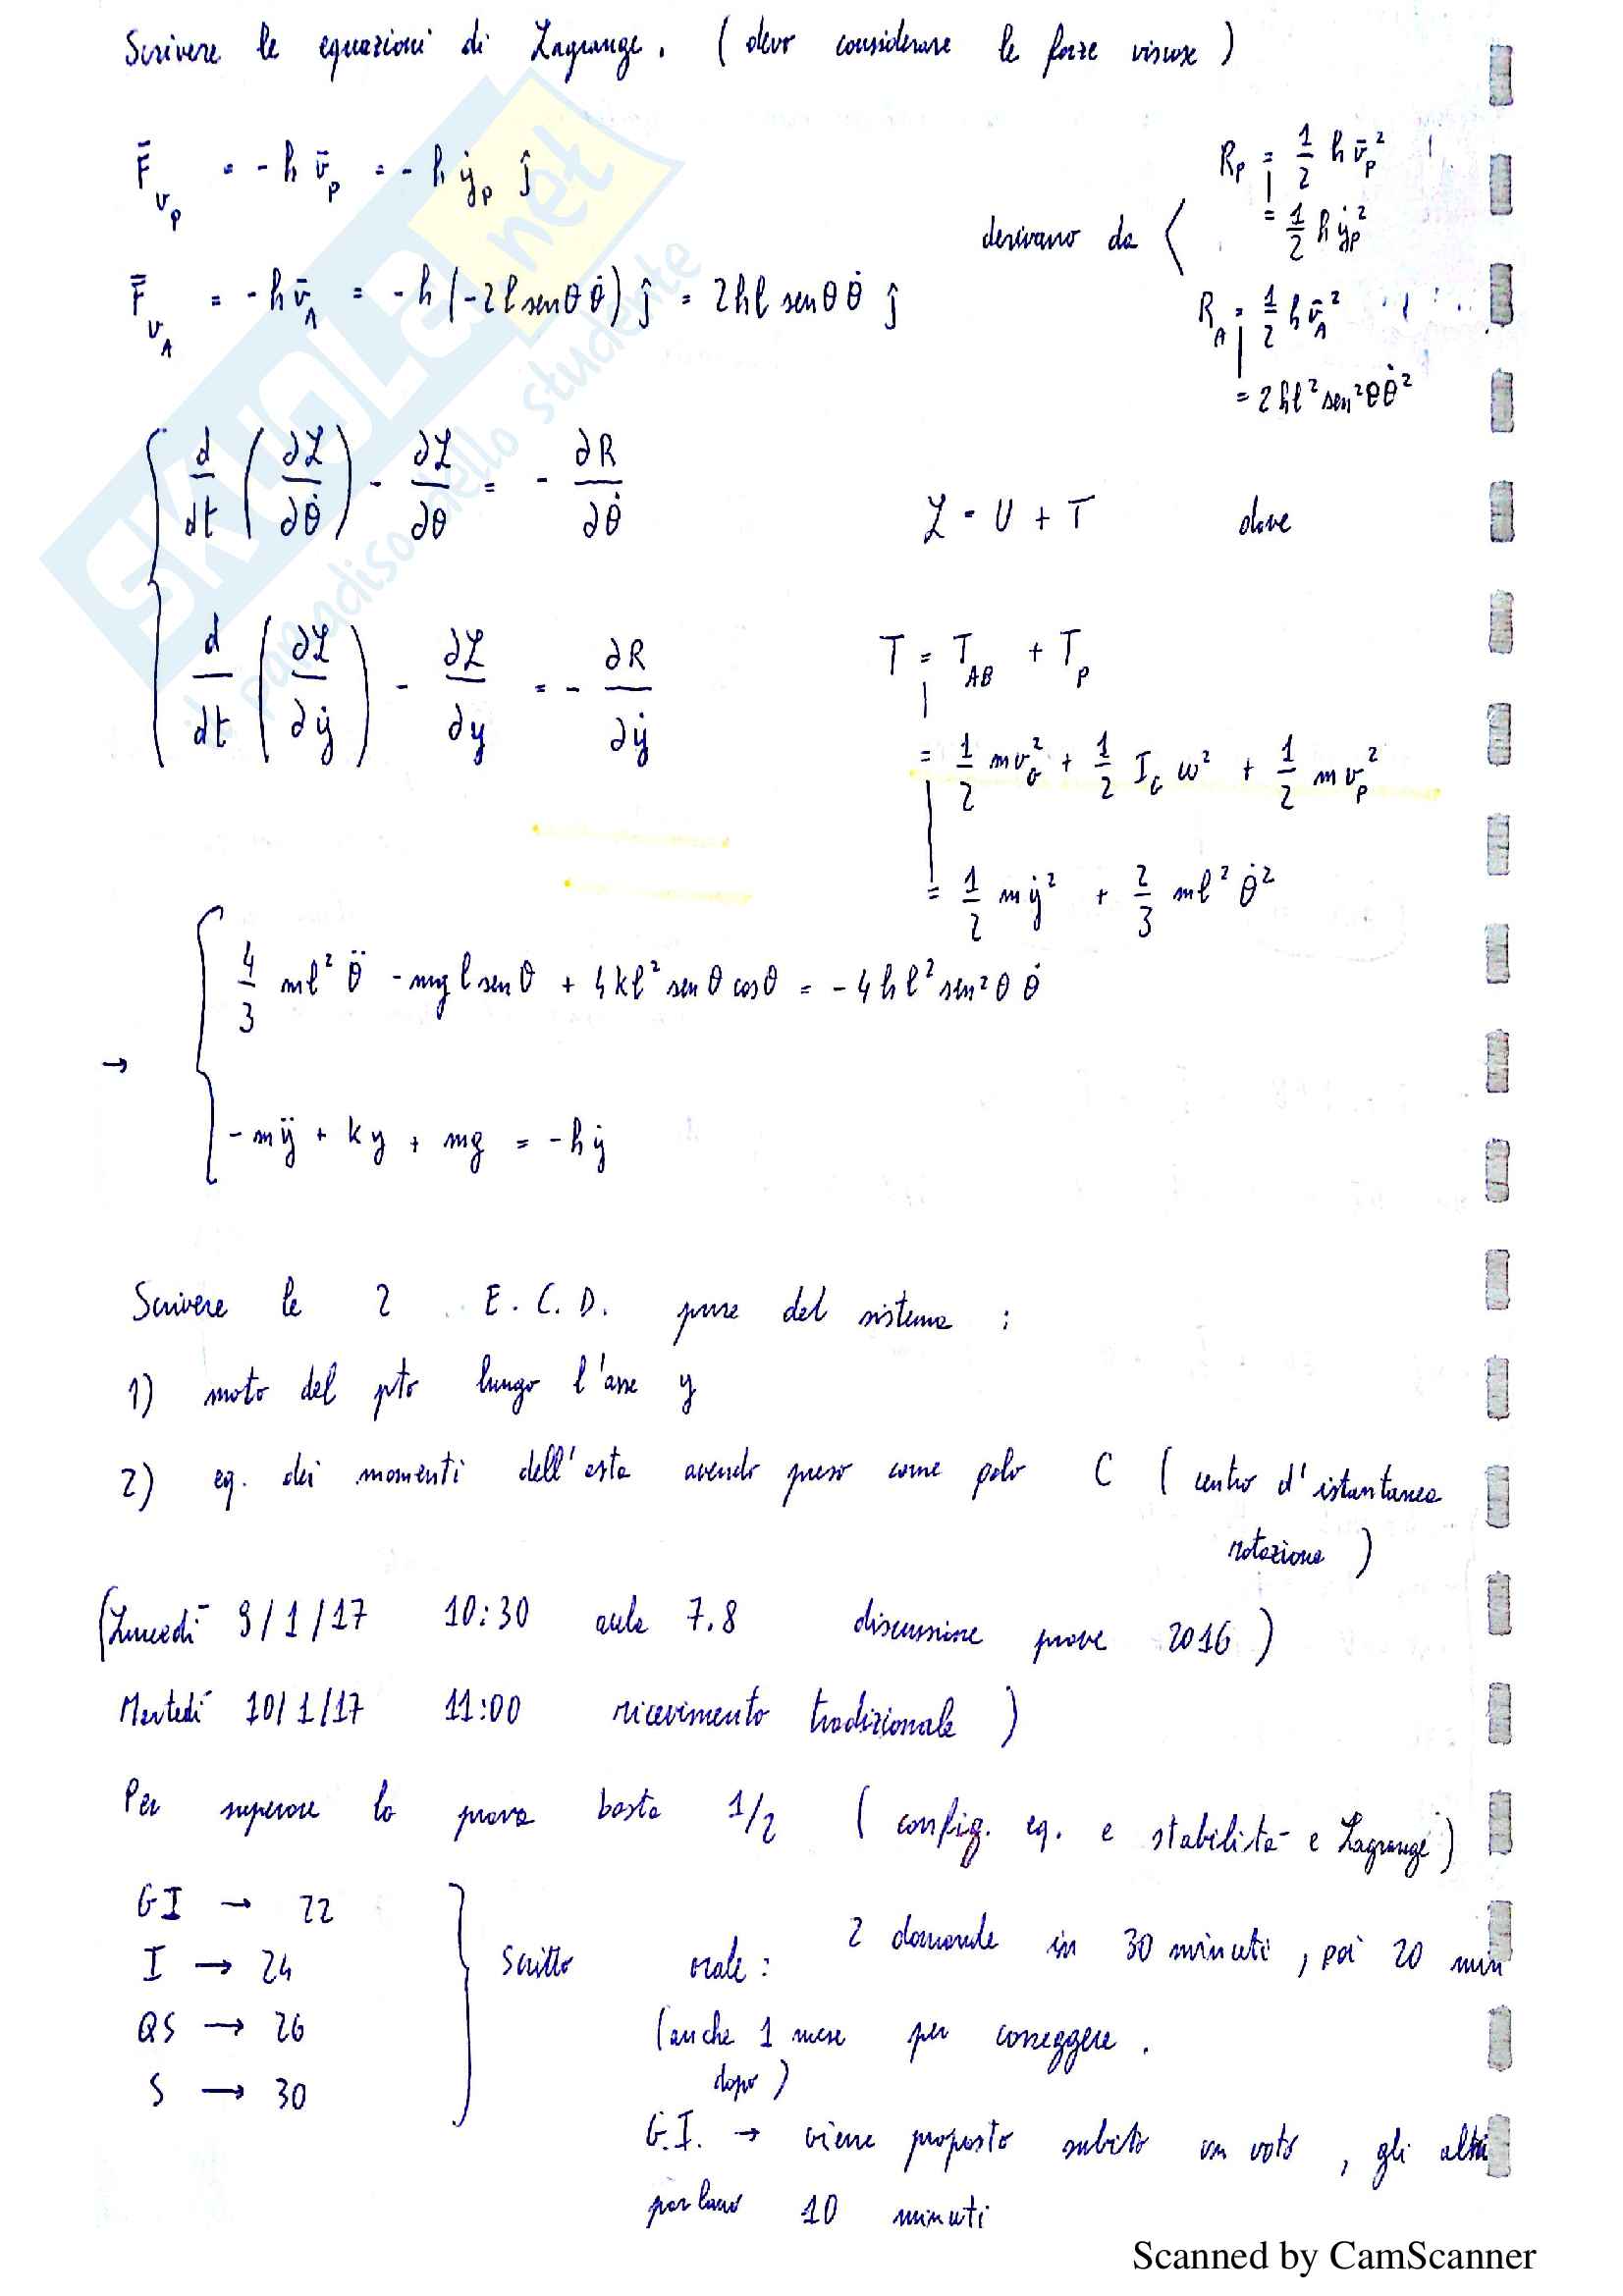 Scrivere le equazioni di Lagrange. ( devo considerare le forze viscose )
F̄_vP = -h v̄_P = -h ẏ_P ĵ
derivano da ⟨ R_P = 1/2 h v̄_P²
= 1/2 h ẏ_P²
F̄_vA = -h v̄_A = -h (-2l senθ θ̇) ĵ = 2hl senθ θ̇ ĵ
R_A = 1/2 h v̄_A²
= 2hl² sen²θ θ̇²
d/dt (∂ℒ/∂θ̇) - ∂ℒ/∂θ = - ∂R/∂θ̇
ℒ = U + T dove
d/dt (∂ℒ/∂ẏ) - ∂ℒ/∂y = - ∂R/∂ẏ
T = T_AB + T_P
= 1/2 m v_G² + 1/2 I_G ω² + 1/2 m v_P²
= 1/2 m ẏ² + 2/3 ml² θ̇²
→ { 4/3 ml² θ̈ - mg l senθ + 4kl² senθ cosθ = -4hl² sen²θ θ̇
-mÿ + ky + mg = -hẏ
Scrivere le 2 E.C.D. pure del sistema :
1) moto del pto lungo l'asse y
2) eq. dei momenti dell'asta avendo preso come polo C ( centro d'istantanea
rotazione )
(Lunedì 9/1/17 10:30 aula 7.8 discussione prove 2016 )
Martedì 10/1/17 11:00 ricevimento tradizionale )
Per superare la prova basta 1/2 ( config. eq. e stabilità e Lagrange )
GI → 22
I → 24
QS → 26
S → 30
} scritto
orale : 2 domande in 30 minuti, poi 20 min
(anche 1 mese per correggere .
dopo )
G.I. → viene proposto subito un voto , gli altri
parlano 10 minuti
Scanned by CamScanner
SKUOLA.net
il paradiso dello studente